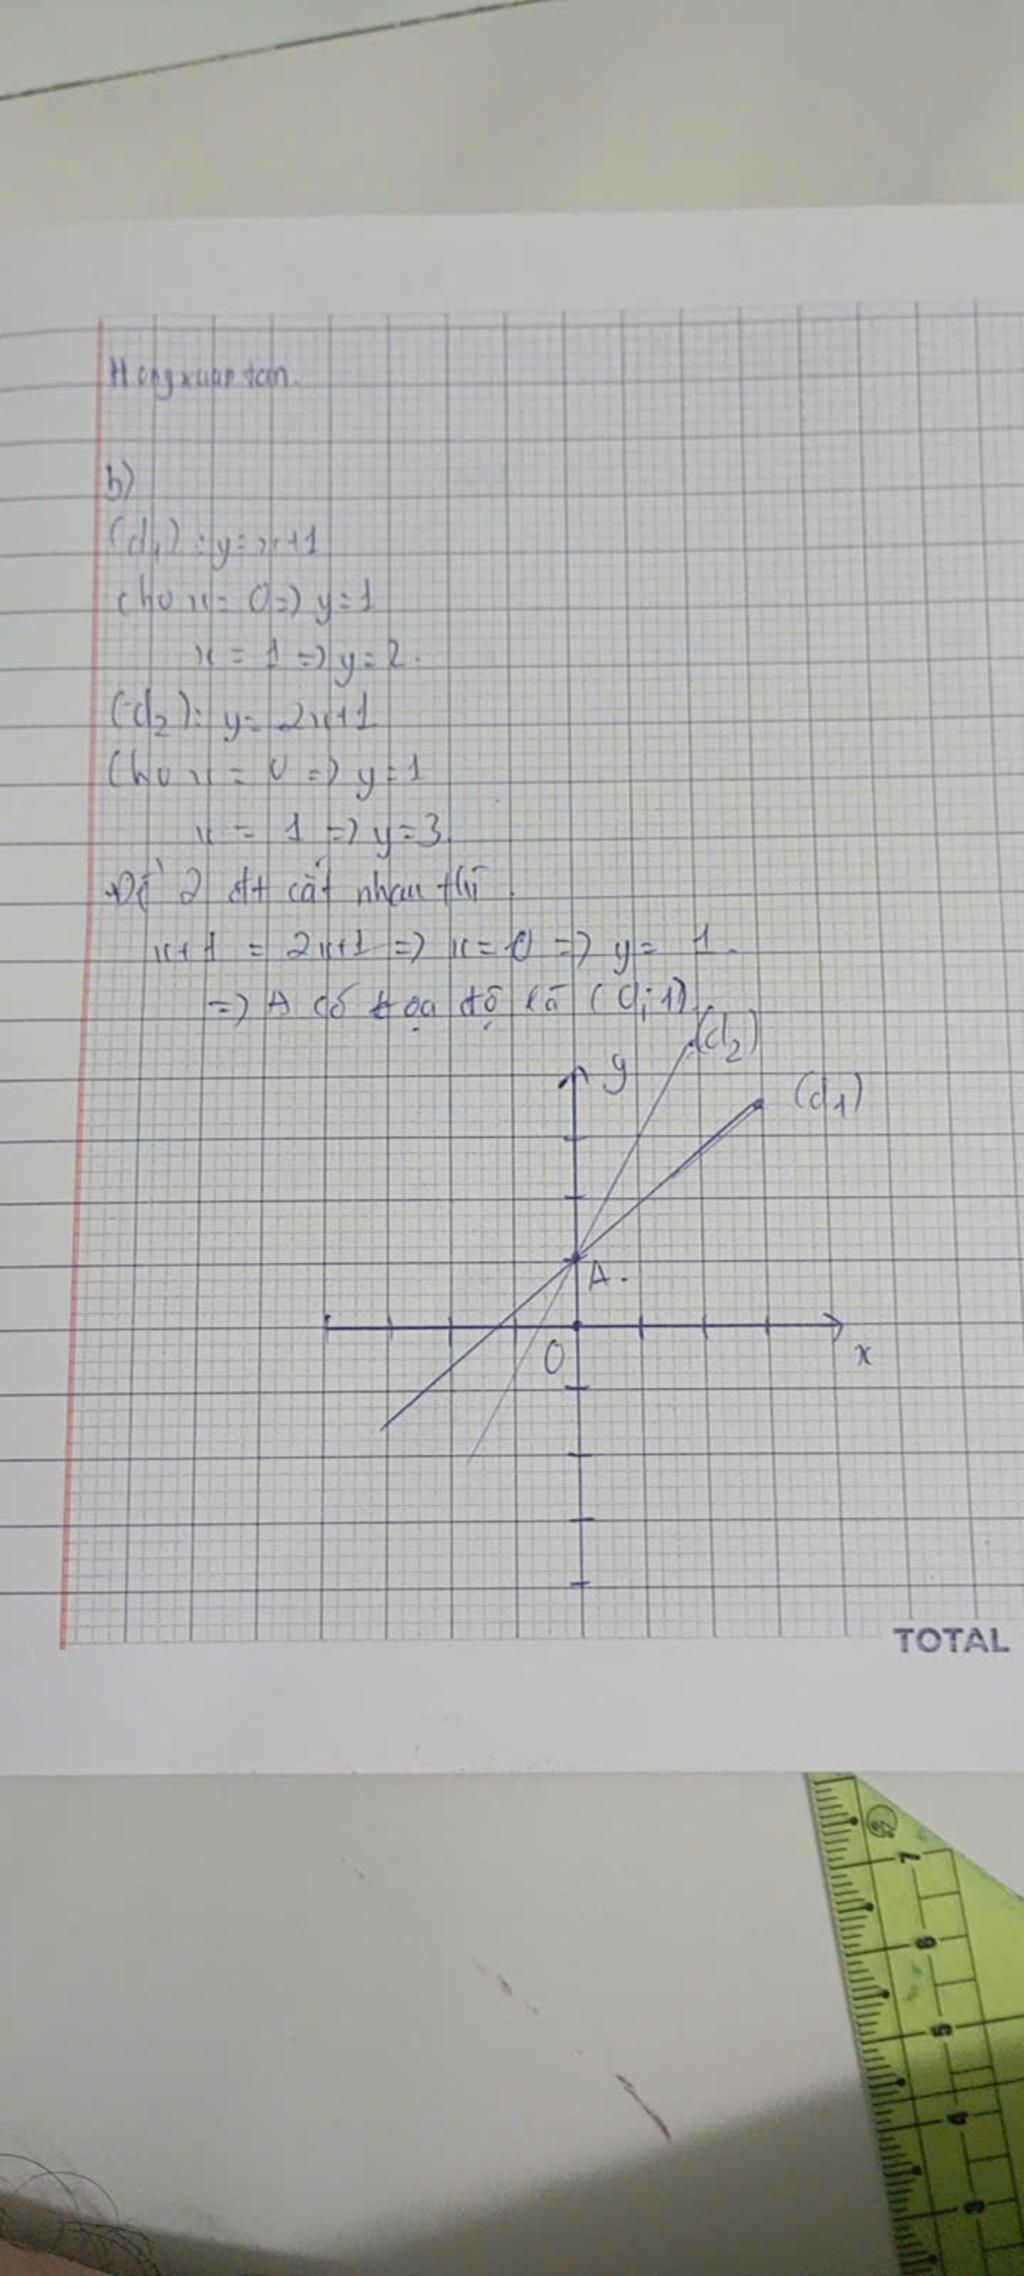 b)
(d₁) : y = x+1
Cho x = 0 => y = 1
x = 1 => y = 2.
(d₂): y = 2x+1
Cho x = 0 => y = 1
x = 1 => y = 3.
Để 2 đt cắt nhau thì
x+1 = 2x+1 => x = 0 => y = 1.
=> A có tọa độ là (0;1)
(d₂)
y
(d₁)
A.
O
x
TOTAL
7
6
5
4
3